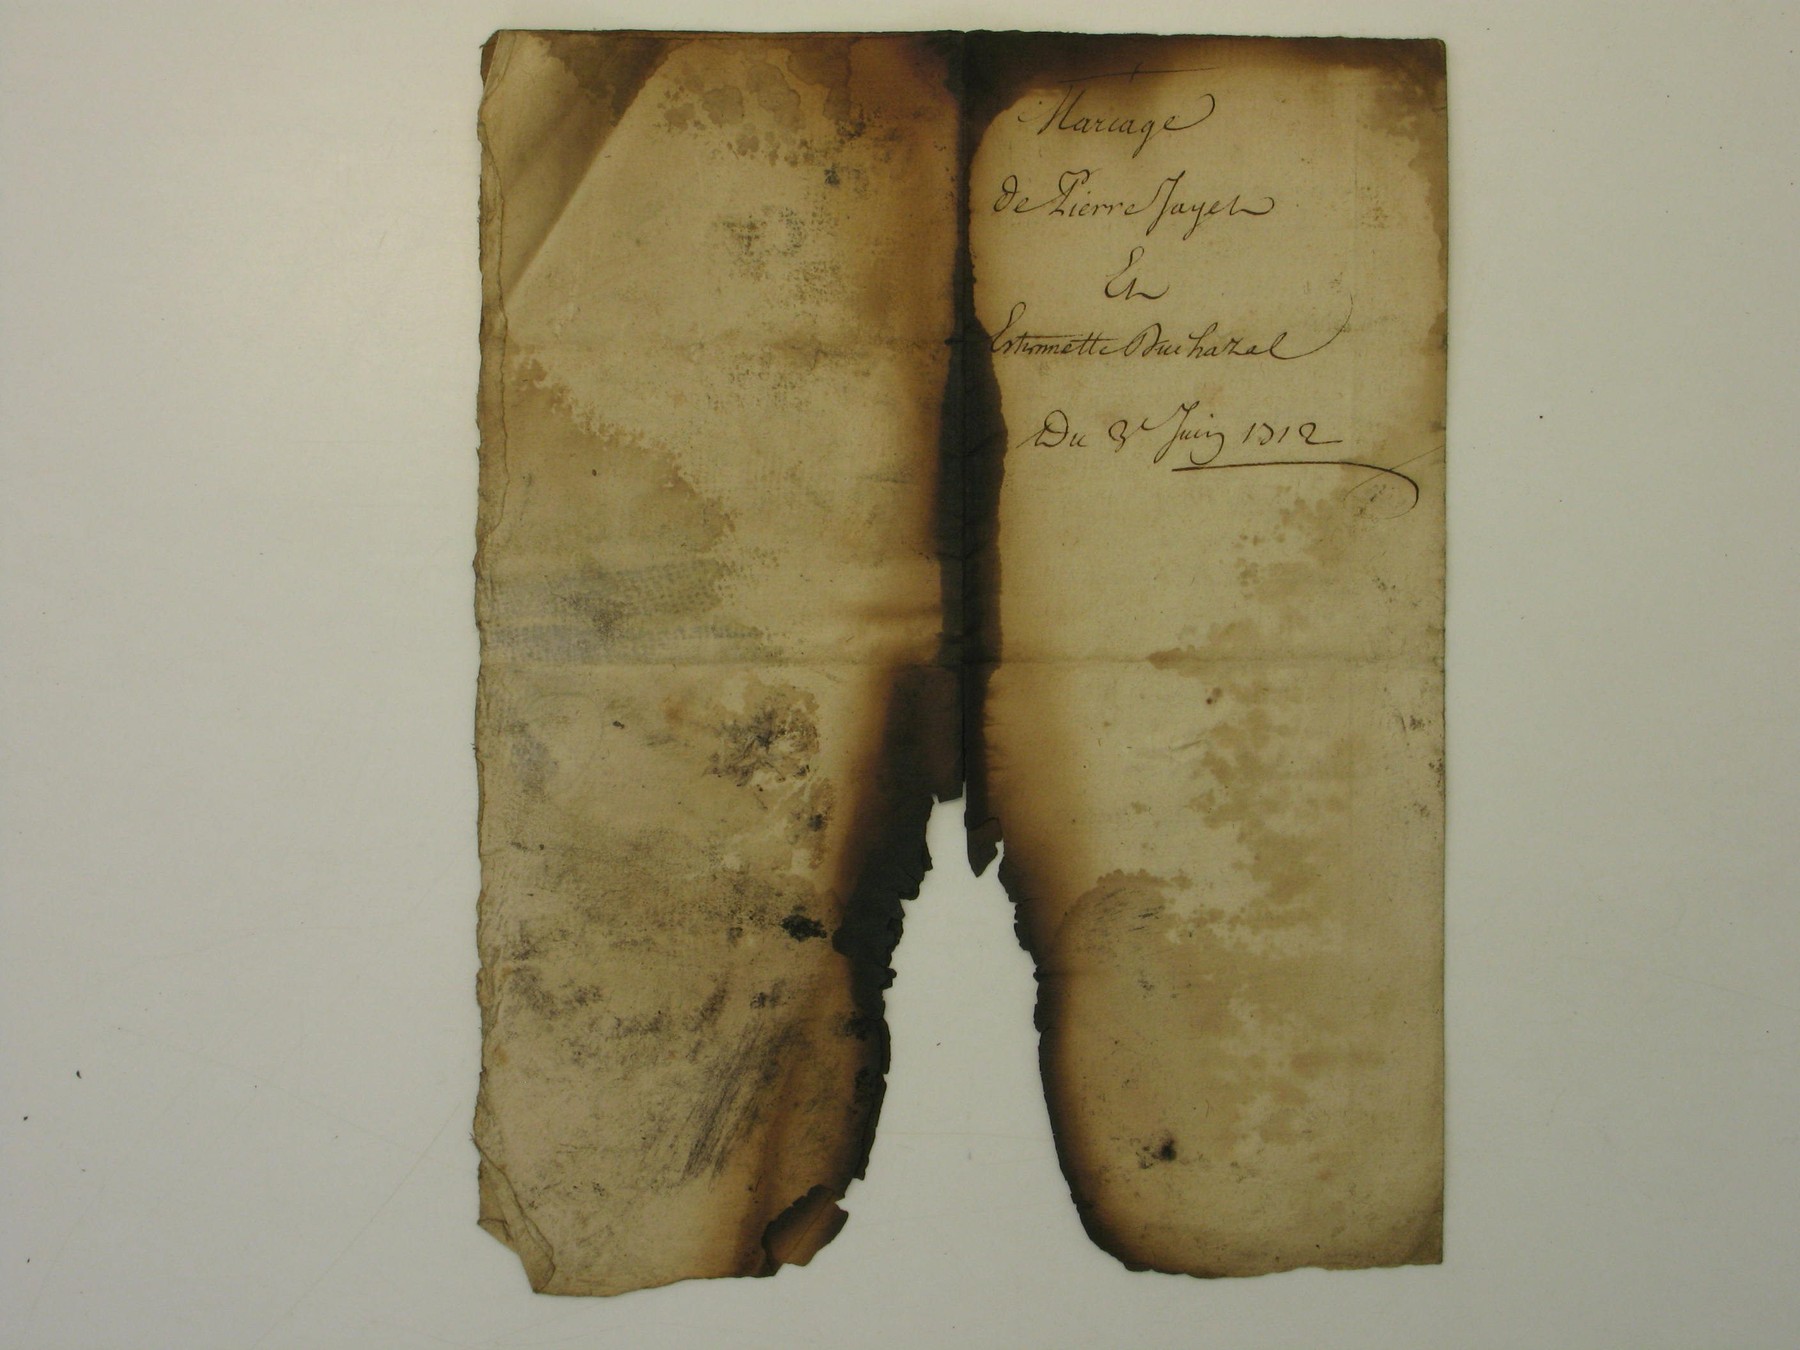 Mariage
de Pierre Jayet
Et
Estiennette Duchazal
Du 3e Juin 1712